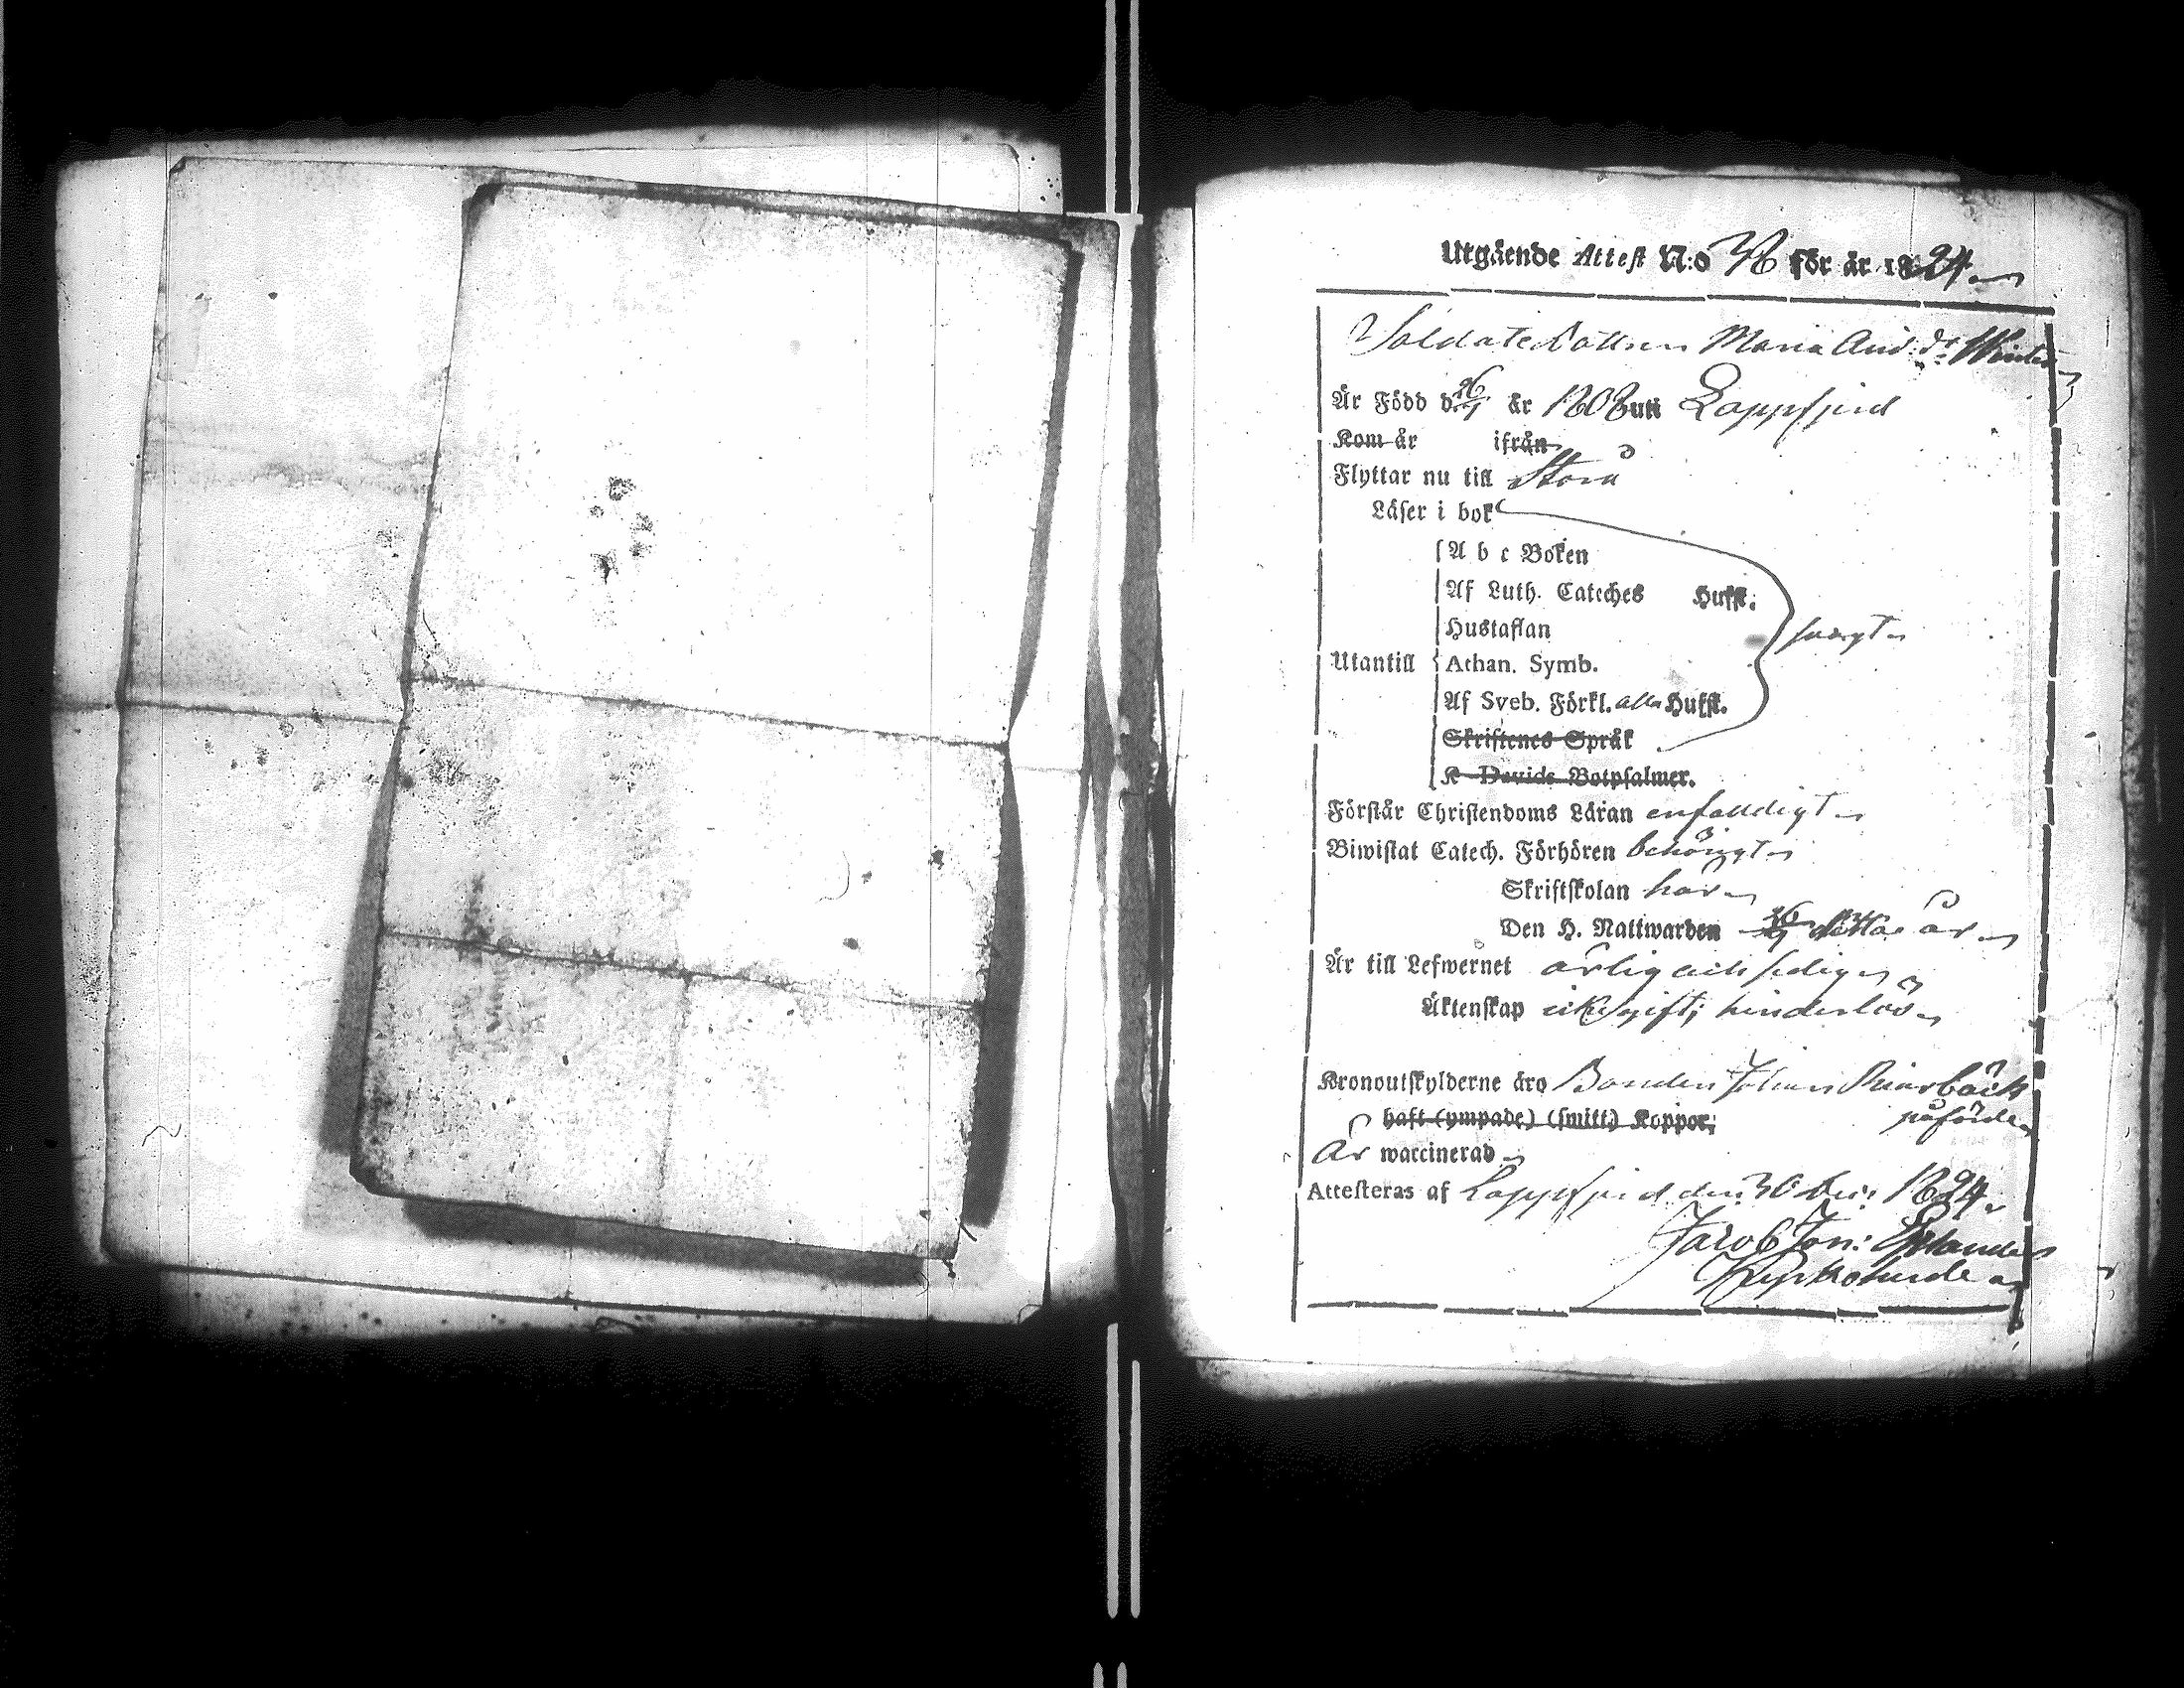 Utgående Attest N:o 38 för år 1824
Soldatedottren Maria And: dr
Är Född d. 26/1 år 1808 uti Lappfjerd
Kom år ifrån
Flyttar nu till Storå
Läser i bok
A b c Boken
Af Luth. Cateches Hufst.
Hustaflan
Utantill Athan. Symb.
Af Sveb. Förkl. alla Hufst.
Skriftenes Språk
K Davids Botpsalmer.
Förstår Christendoms Läran enfalldigt
Biwistat Catech. Förhören behörigt
Skriftskolan har
Den H. Nattwarden detta år
Är till Lefwernet ärlig och sedig
Äktenskap ickegift; hinderlös
Kronoutskylderne äro Bonden Johan
påförde
haft (ympade) (smitt.) Koppor;
Är waccinerad
Attesteras af Lappfjerd den 30 1824
Jacob Jon:
Kyrkoherde